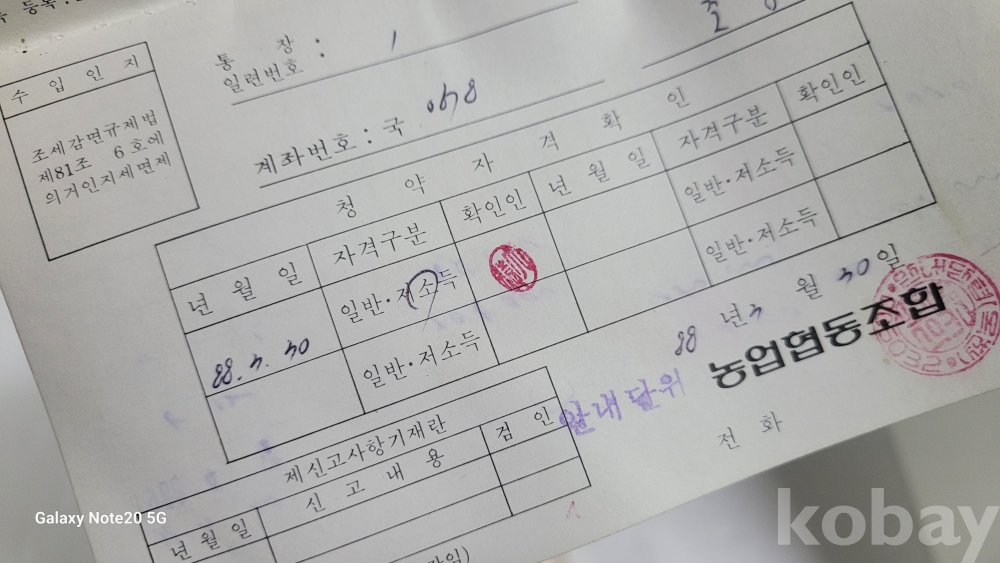 수 등록
수 입 인 지
조세감면규제법
제81조 6호에
의거인지세면제
통 장
일련번호 : 1
계좌번호 : 국
청 약 자 격 확 인
년 월 일 자격구분 확인인 년 월 일 자격구분 확인인
88. 3. 30 일반·저소득 일반·저소득
일반·저소득 일반·저소득
88 년 3 월 30 일
안내단위 농업협동조합
전 화
제신고사항기재란
년 월 일 신 고 내 용 검 인
Galaxy Note20 5G
kobay